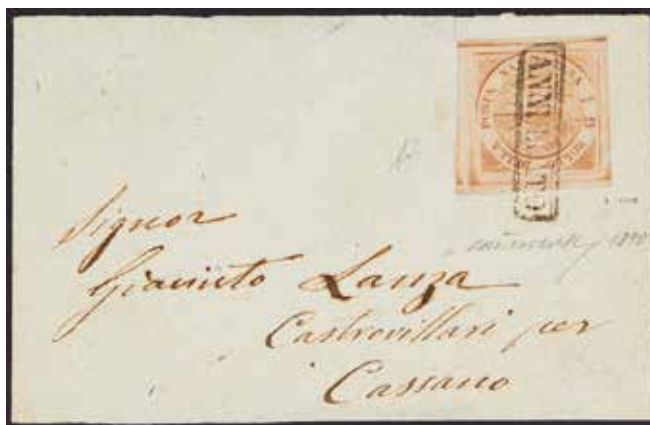 ANNULLATO
Signor
Giacinto Lanza
Castrovillari per
Cassano